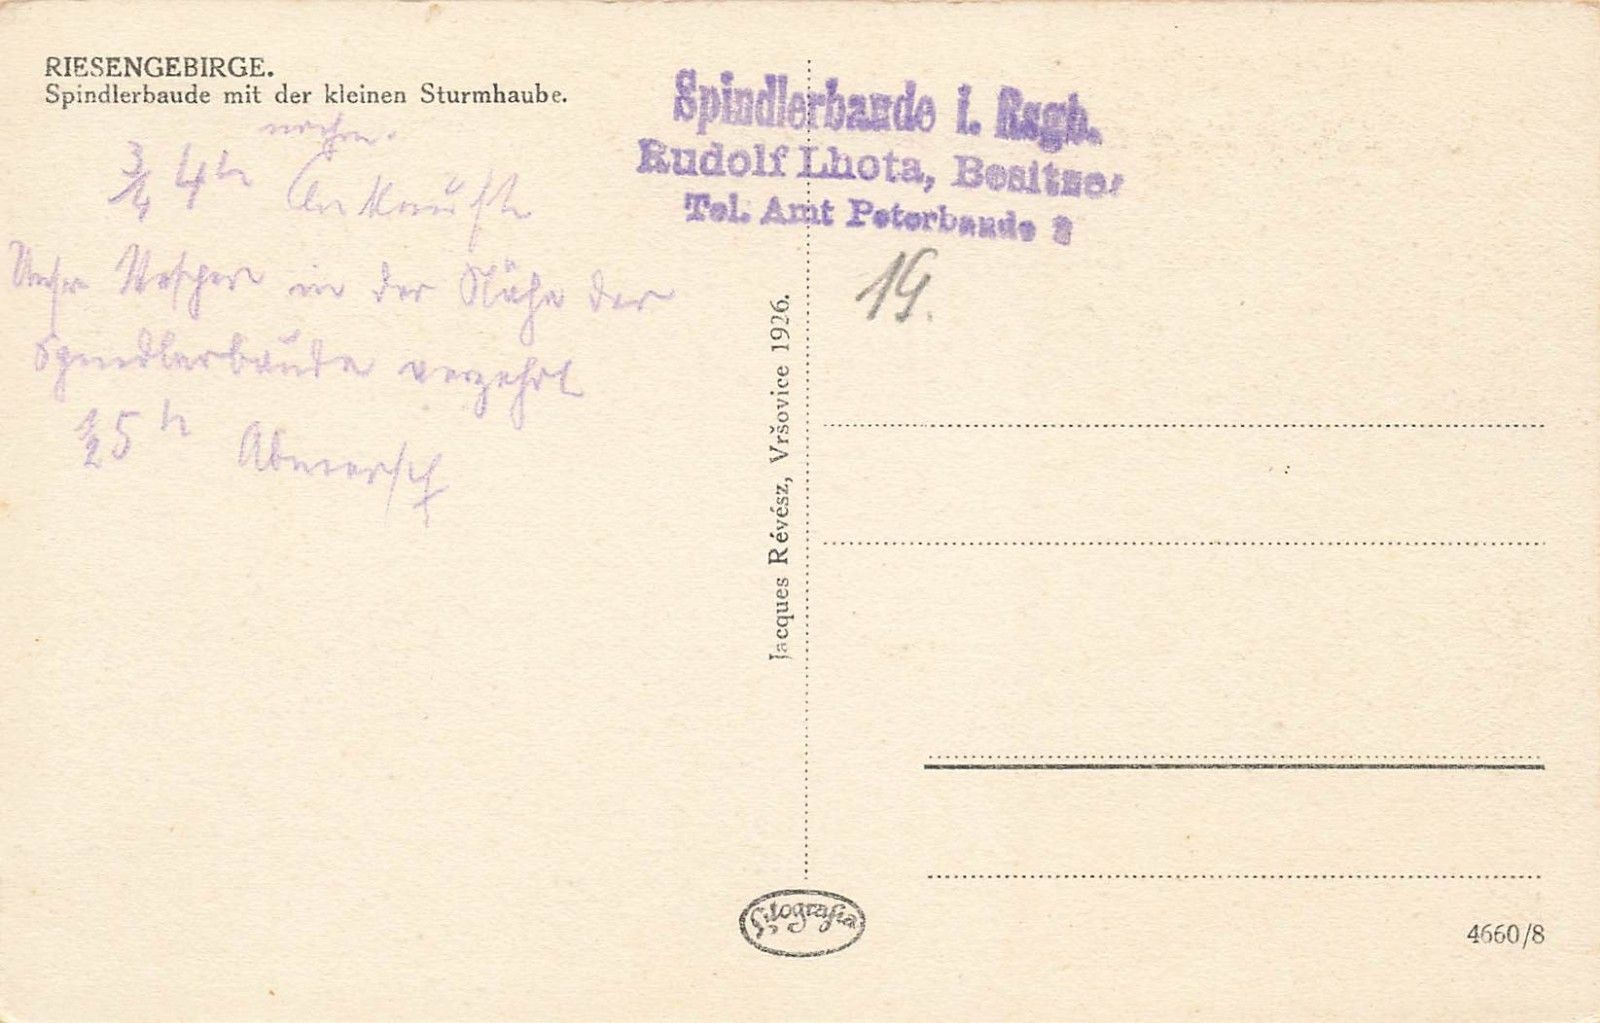 RIESENGEBIRGE.
Spindlerbaude mit der kleinen Sturmhaube.
nachm.
3/4 4 h Ankunft
Vesper in der Nähe der
Spindlerbaude verzehrt
1/2 5 h Abmarsch
Spindlerbaude i. Rsgb.
Rudolf Lhota, Besitzer
Tel. Amt Peterbaude 8
19.
Jacques Révész, Vršovice 1926.
Fotografia
4660/8